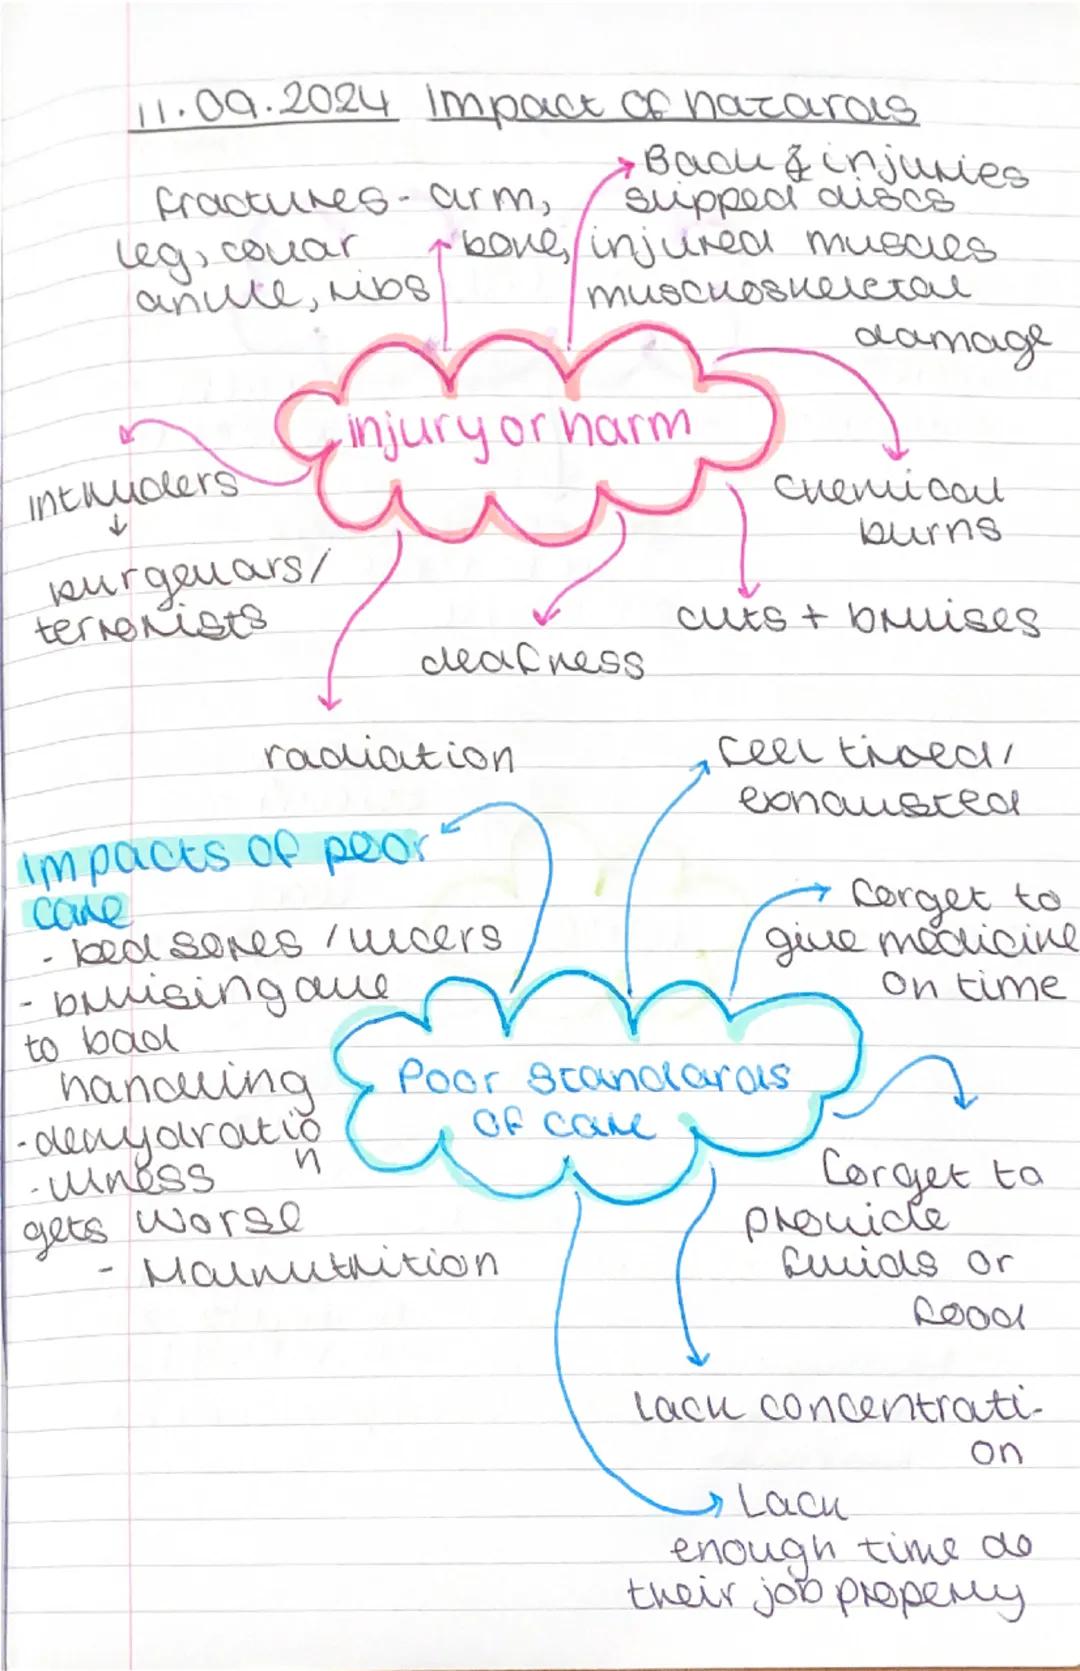 11.09.2024 Impact of hazards
fractures - arm,
leg, collar bone,
ankle, ribs
Back & injuries
slipped discs
injured muscles
muscroskeletal
damage
injury or harm
intruders
↓
burgelars/
terrorists
chemical
burns
cuts + bruises
deafness
radiation
feel tired/
exhausted
Impacts of poor
care
- bed sores / ulcers
- bruising due
to bad
handling
- dehydratio
n
- illness
gets worse
- Malnutrition
forget to
give medicine
on time
Poor standards
of care
forget to
provide
fluids or
food
Lack concentrati-
on
Lack
enough time do
their job properly